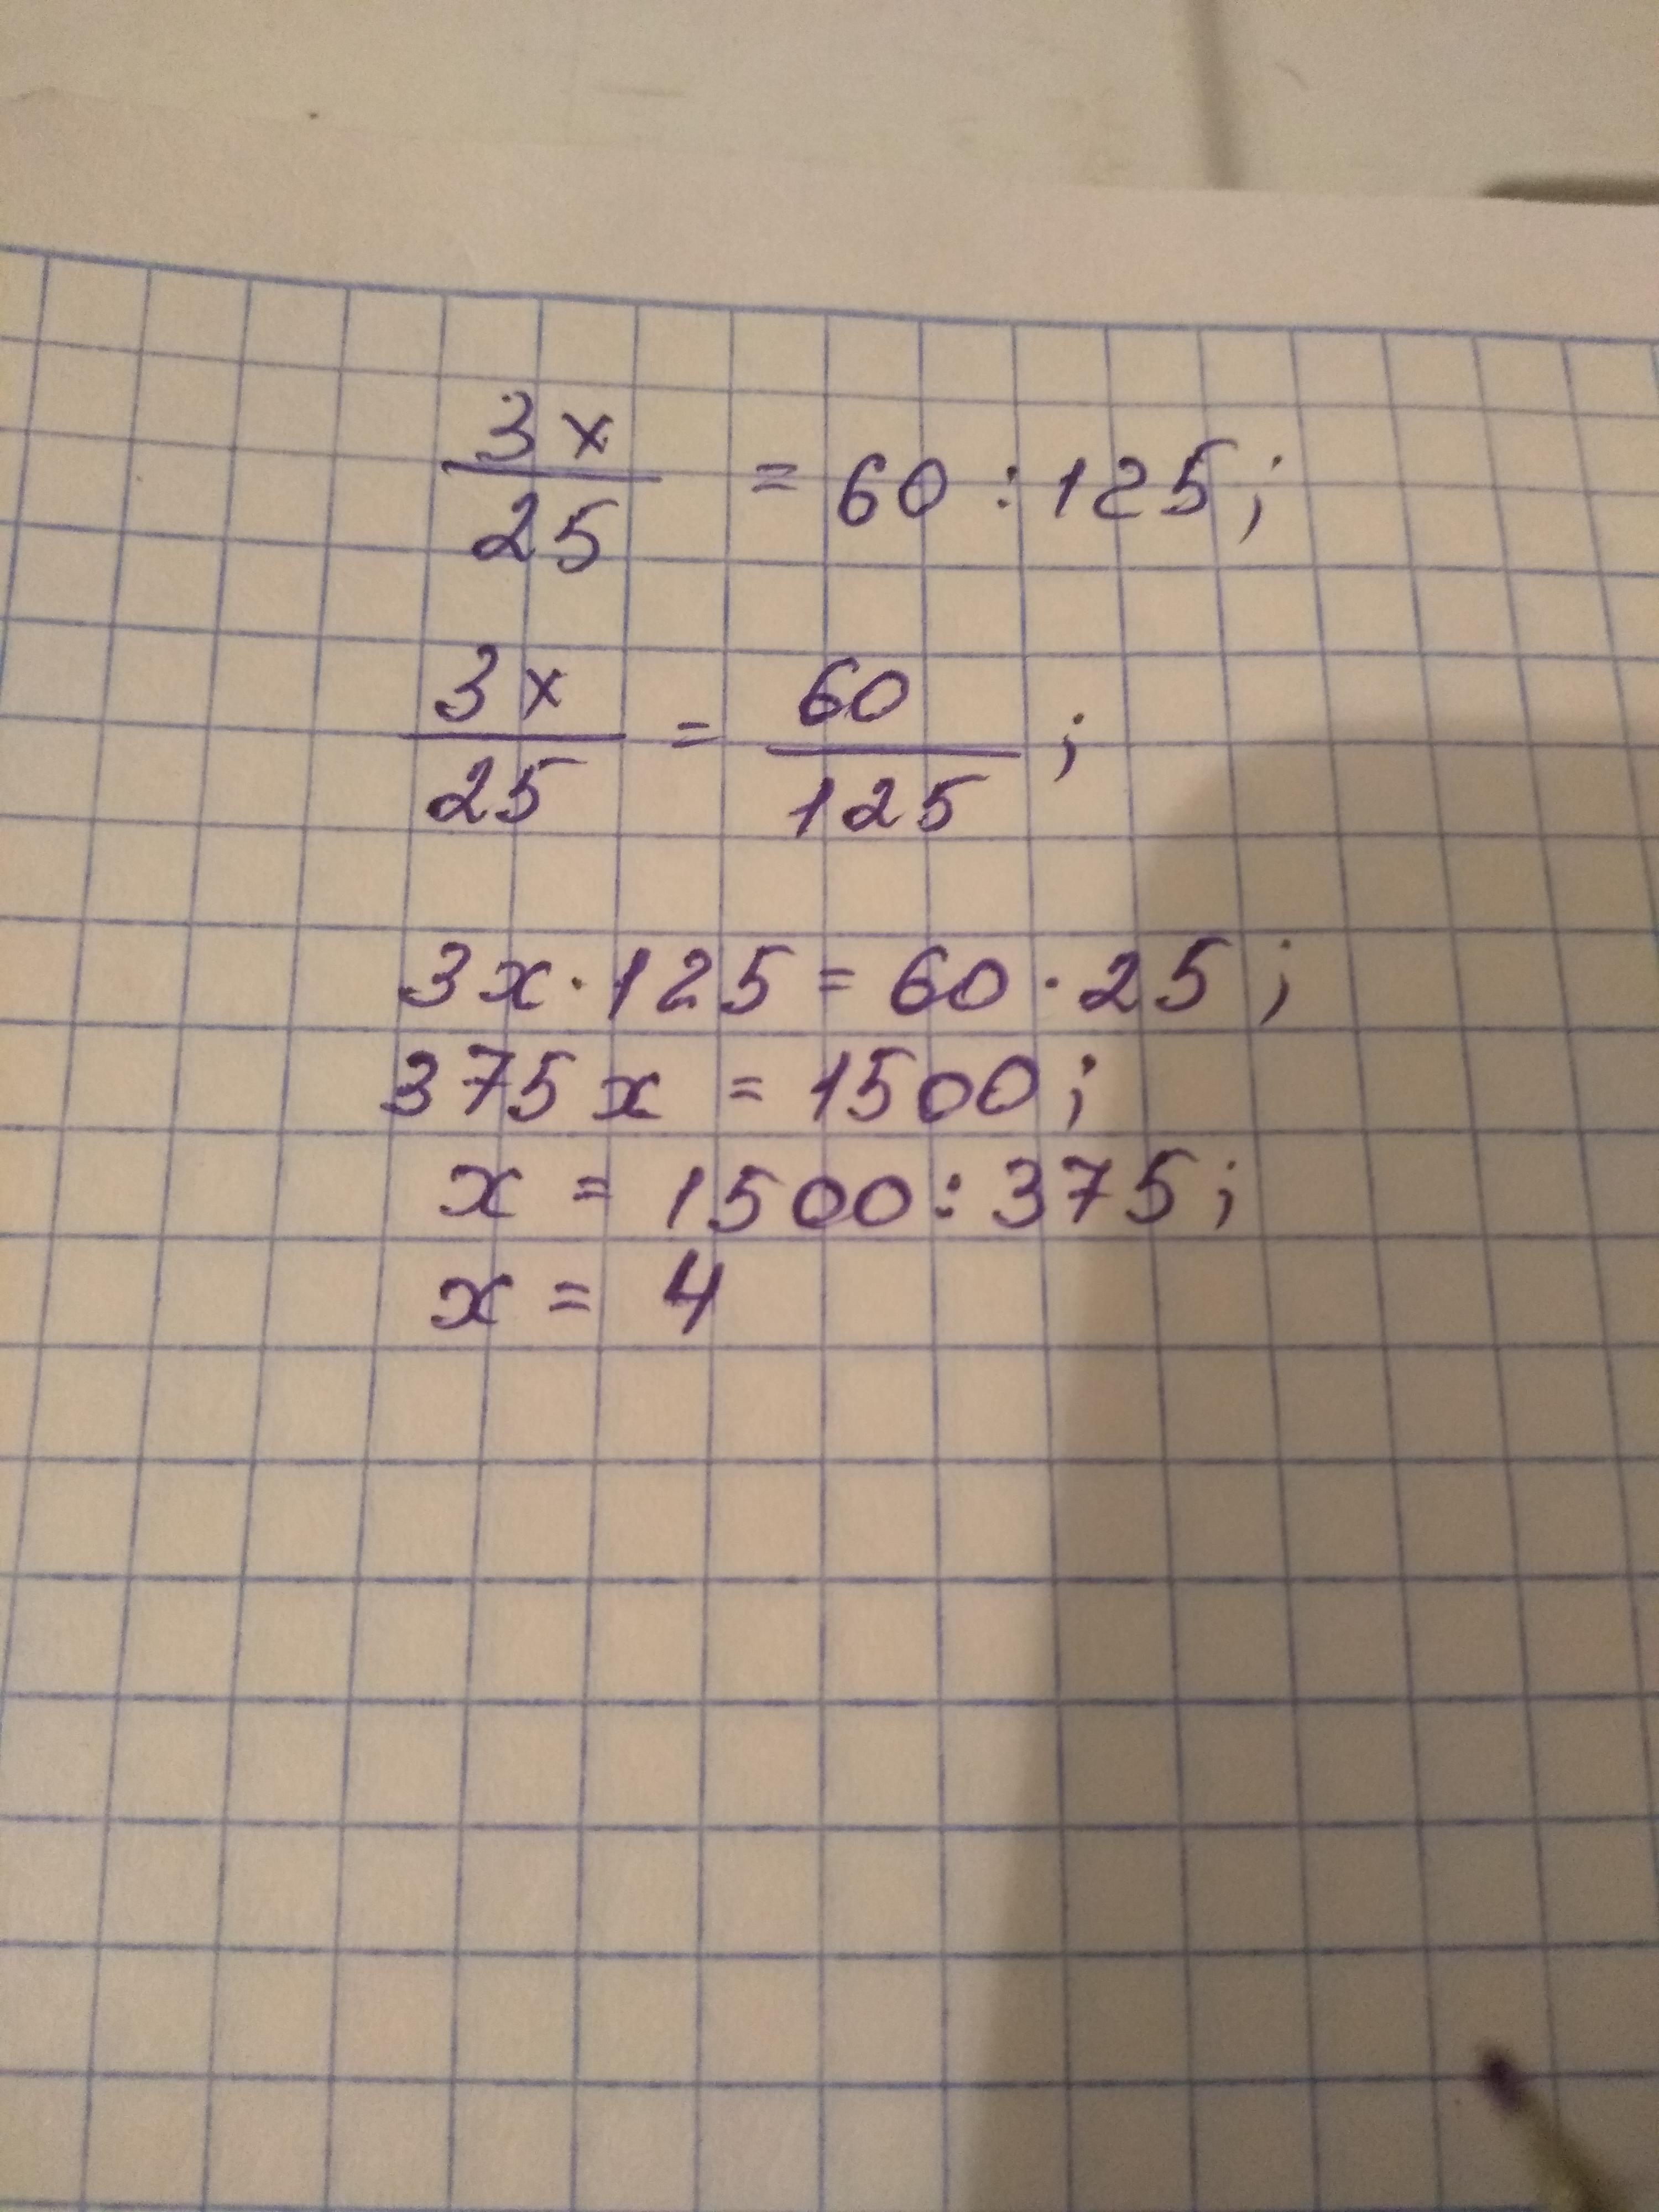 3x/25 = 60 : 125;
3x/25 = 60/125;
3x · 125 = 60 · 25;
375x = 1500;
x = 1500 : 375;
x = 4